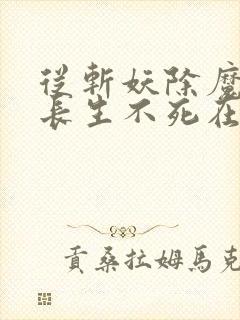 從斬妖除魔
長生不死在
貢桑拉姆馬克